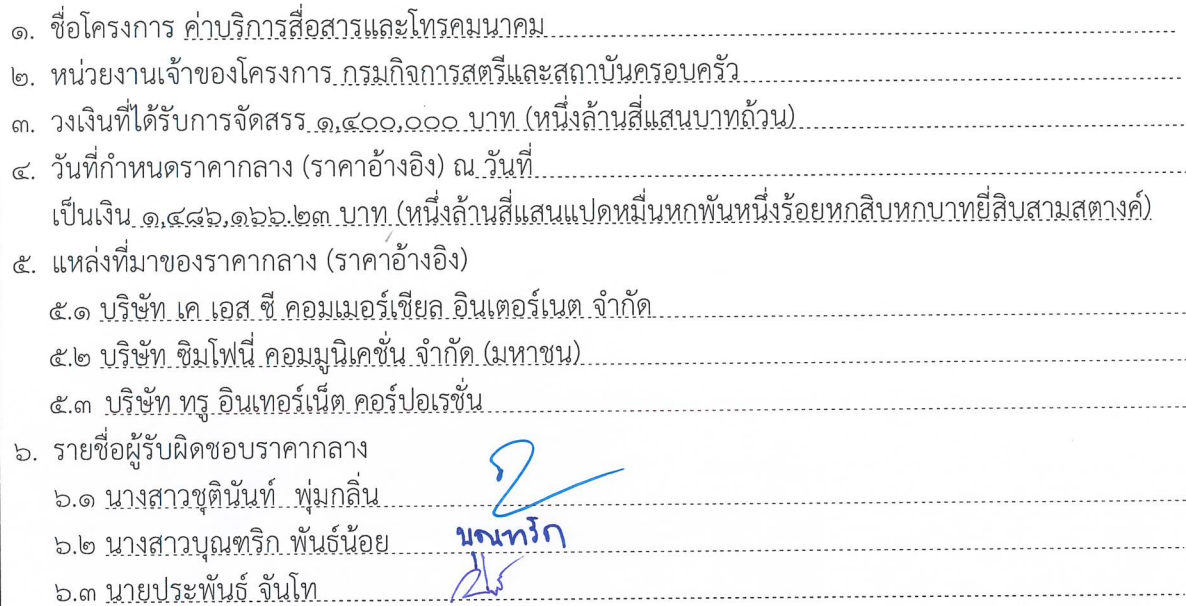 ๑. ชื่อโครงการ ค่าบริการสื่อสารและโทรคมนาคม
๒. หน่วยงานเจ้าของโครงการ กรมกิจการสตรีและสถาบันครอบครัว
๓. วงเงินที่ได้รับการจัดสรร ๑,๔๐๐,๐๐๐ บาท (หนึ่งล้านสี่แสนบาทถ้วน)
๔. วันที่กำหนดราคากลาง (ราคาอ้างอิง) ณ วันที่
เป็นเงิน ๑,๔๘๖,๑๖๖.๒๓ บาท (หนึ่งล้านสี่แสนแปดหมื่นหกพันหนึ่งร้อยหกสิบหกบาทยี่สิบสามสตางค์)
๕. แหล่งที่มาของราคากลาง (ราคาอ้างอิง)
๕.๑ บริษัท เค เอส ซี คอมเมอร์เชียล อินเตอร์เนต จำกัด
๕.๒ บริษัท ซิมโฟนี่ คอมมูนิเคชั่น จำกัด (มหาชน)
๕.๓ บริษัท ทรู อินเทอร์เน็ต คอร์ปอเรชั่น
๖. รายชื่อผู้รับผิดชอบราคากลาง
๖.๑ นางสาวชุตินันท์ พุ่มกลิ่น
๖.๒ นางสาวบุณฑริก พันธ์น้อย บุณฑริก
๖.๓ นายประพันธ์ จันโท